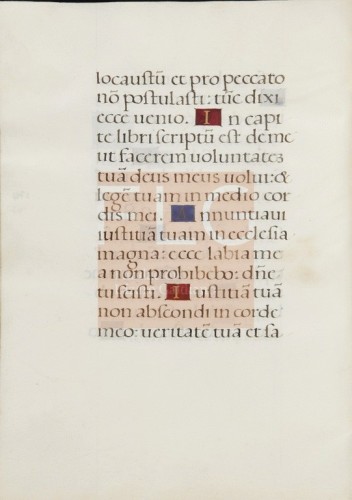 locaustū et pro peccato
nō postulasti: tūc dixi
ecce uenio. In capi
te libri scriptū est de me
ut facerem uoluntatē
tuā deus meus uolui: &
legē tuam in medio cor
dis mei. Annuntiaui
iustitiā tuam in ecclesia
magna: ecce labia me
a non prohibebo: dn̄e
tu scisti. Iustitiā tuā
non abscondi in corde
meo: ueritatē tuā et sa